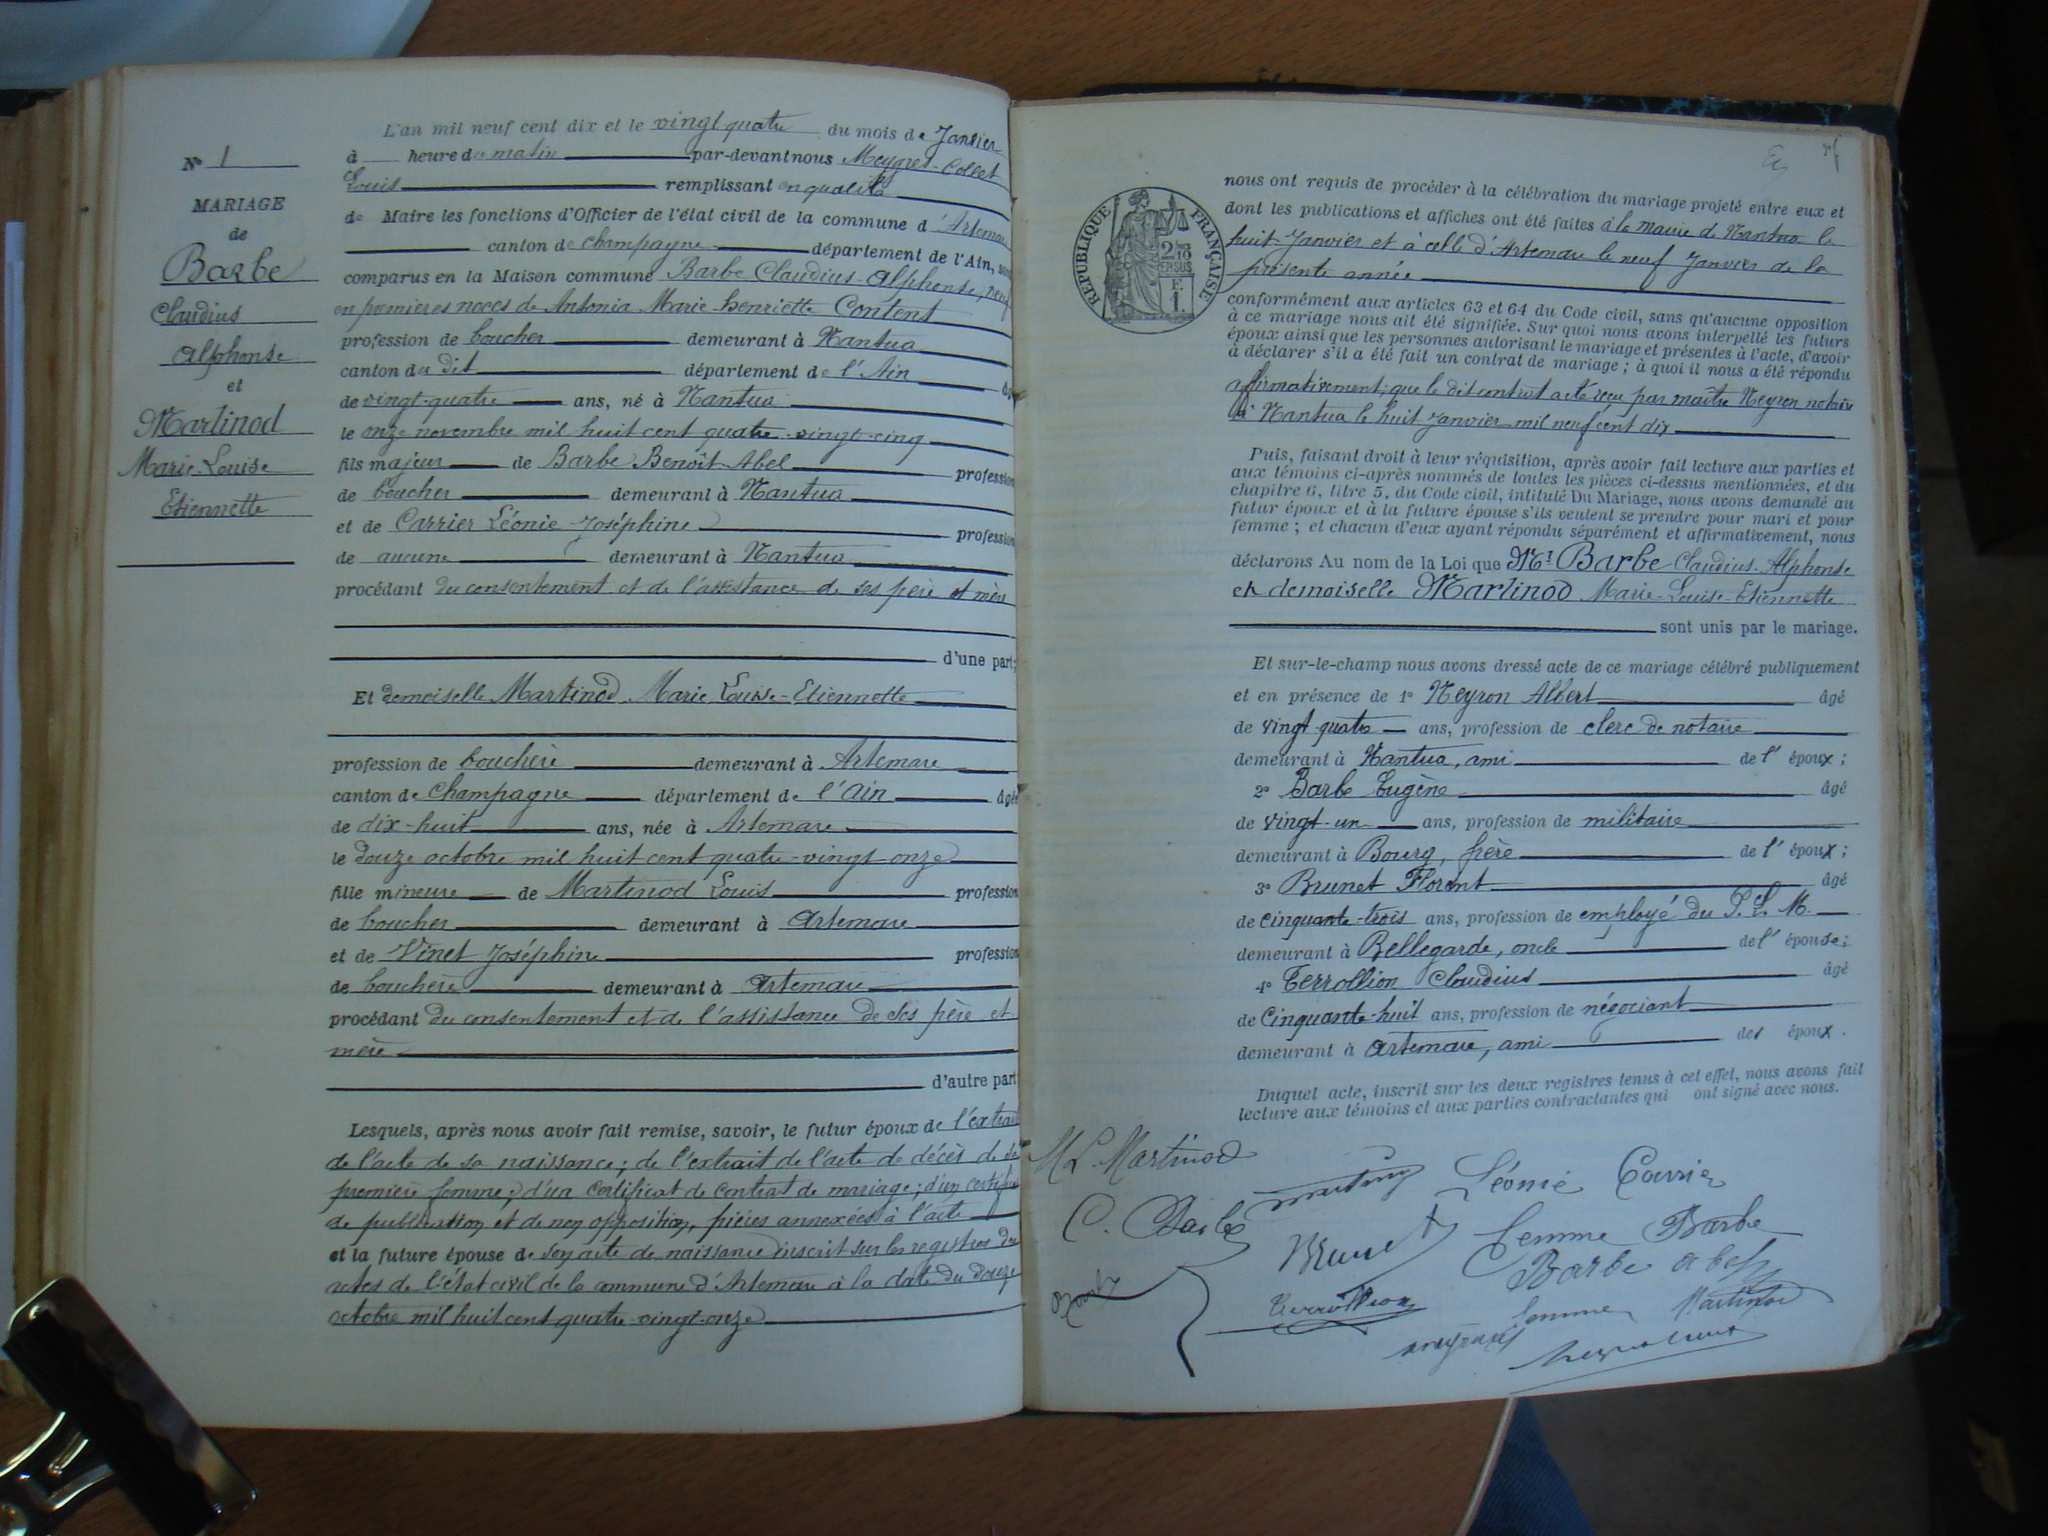 N° 1
MARIAGE
de
Barbe
Claudius
Alphonse
et
Martinod
Marie-Louise
Etiennette
L'an mil neuf cent dix et le vingt quatre du mois de Janvier
à heure du matin par-devant nous Meygret-Collet
Louis remplissant en qualité
de Maire les fonctions d'Officier de l'état civil de la commune d'Artemare
canton de Champagne département de l'Ain, sont
comparus en la Maison commune Barbe Claudius-Alphonse, veuf
en premières noces de Antonia Marie-henriette Content
profession de boucher demeurant à Nantua
canton du dit département de l'Ain âgé
de vingt-quatre ans, né à Nantua
le onze novembre mil huit cent quatre-vingt-cinq
fils majeur de Barbe Benoît-Abel profession
de boucher demeurant à Nantua
et de Carrier Léonie-Joséphine profession
de aucune demeurant à Nantua
procédant du consentement et de l'assistance de ses père et mère
d'une part;
Et demoiselle Martinod Marie Louise-Etiennette
profession de bouchère demeurant à Artemare
canton de Champagne département de l'Ain âgée
de dix-huit ans, née à Artemare
le douze octobre mil huit cent quatre-vingt-onze
fille mineure de Martinod Louis profession
de boucher demeurant à Artemare
et de Vinet Joséphine profession
de bouchère demeurant à Artemare
procédant du consentement et de l'assistance de ses père et
mère
d'autre part
Lesquels, après nous avoir fait remise, savoir, le futur époux de l'extrait
de l'acte de sa naissance; de l'extrait de l'acte de décès de sa
première femme; d'un certificat de contrat de mariage; d'un certificat
de publication et de non opposition, pièces annexées à l'acte
et la future épouse de son acte de naissance inscrit sur les registres des
actes de l'état civil de la commune d'Artemare à la date du douze
octobre mil huit cent quatre-vingt-onze
RÉPUBLIQUE FRANÇAISE
2/10
EN SUS
F
1
nous ont requis de procéder à la célébration du mariage projeté entre eux et
dont les publications et affiches ont été faites à la mairie de Nantua le
huit-Janvier et à celle d'Artemare le neuf Janvier de la
présente année
conformément aux articles 63 et 64 du Code civil, sans qu'aucune opposition
à ce mariage nous ait été signifiée. Sur quoi nous avons interpellé les futurs
époux ainsi que les personnes autorisant le mariage et présentes à l'acte, d'avoir
à déclarer s'il a été fait un contrat de mariage; à quoi il nous a été répondu
affirmativement, que le dit contrat a été reçu par maître Neyron notaire
à Nantua le huit Janvier mil neuf cent dix
Puis, faisant droit à leur réquisition, après avoir fait lecture aux parties et
aux témoins ci-après nommés de toutes les pièces ci-dessus mentionnées, et du
chapitre 6, titre 5, du Code civil, intitulé Du Mariage, nous avons demandé au
futur époux et à la future épouse s'ils veulent se prendre pour mari et pour
femme; et chacun d'eux ayant répondu séparément et affirmativement, nous
déclarons Au nom de la Loi que Mr Barbe Claudius-Alphonse
et demoiselle Martinod Marie-Louise-Etiennette
sont unis par le mariage.
Et sur-le-champ nous avons dressé acte de ce mariage célébré publiquement
et en présence de 1° Neyron Albert âgé
de vingt-quatre ans, profession de clerc de notaire
demeurant à Nantua, ami de l'époux;
2° Barbe Eugène âgé
de vingt-un ans, profession de militaire
demeurant à Bourg, frère de l'époux;
3° Brunet Florent âgé
de cinquante-trois ans, profession de employé du P.L.M.
demeurant à Bellegarde, oncle de l'épouse;
4° Terrollion Claudius âgé
de Cinquante-huit ans, profession de négociant
demeurant à Artemare, ami des époux.
Duquel acte, inscrit sur les deux registres tenus à cet effet, nous avons fait
lecture aux témoins et aux parties contractantes qui ont signé avec nous.
M L. Martinod
C. Barbe
Léonie Carrier
Brunet
femme Barbe
Barbe abel
Terrollion
femme Martinod